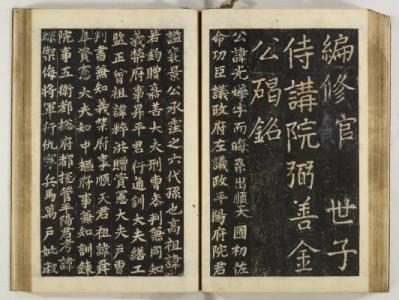 編修官 世子
侍講院弼善金
公碣銘
公諱光燁字而晦系出順天國初佐
命功臣議政府左議政平陽府院君
謚襄景公承霔之六代孫也高祖諱
若鈞贈嘉善大夫刑曹參判同知
義禁府事昇平君行通訓大夫繕工
監正曾祖諱粹洪贈資憲大夫戶曹
判書兼知義禁府事順天君祖諱舜
皐資憲大夫知中樞府事兼知訓鍊
院事五衛都摠府都摠管平陽君考諱
行仇寧兵馬萬戶妣淑